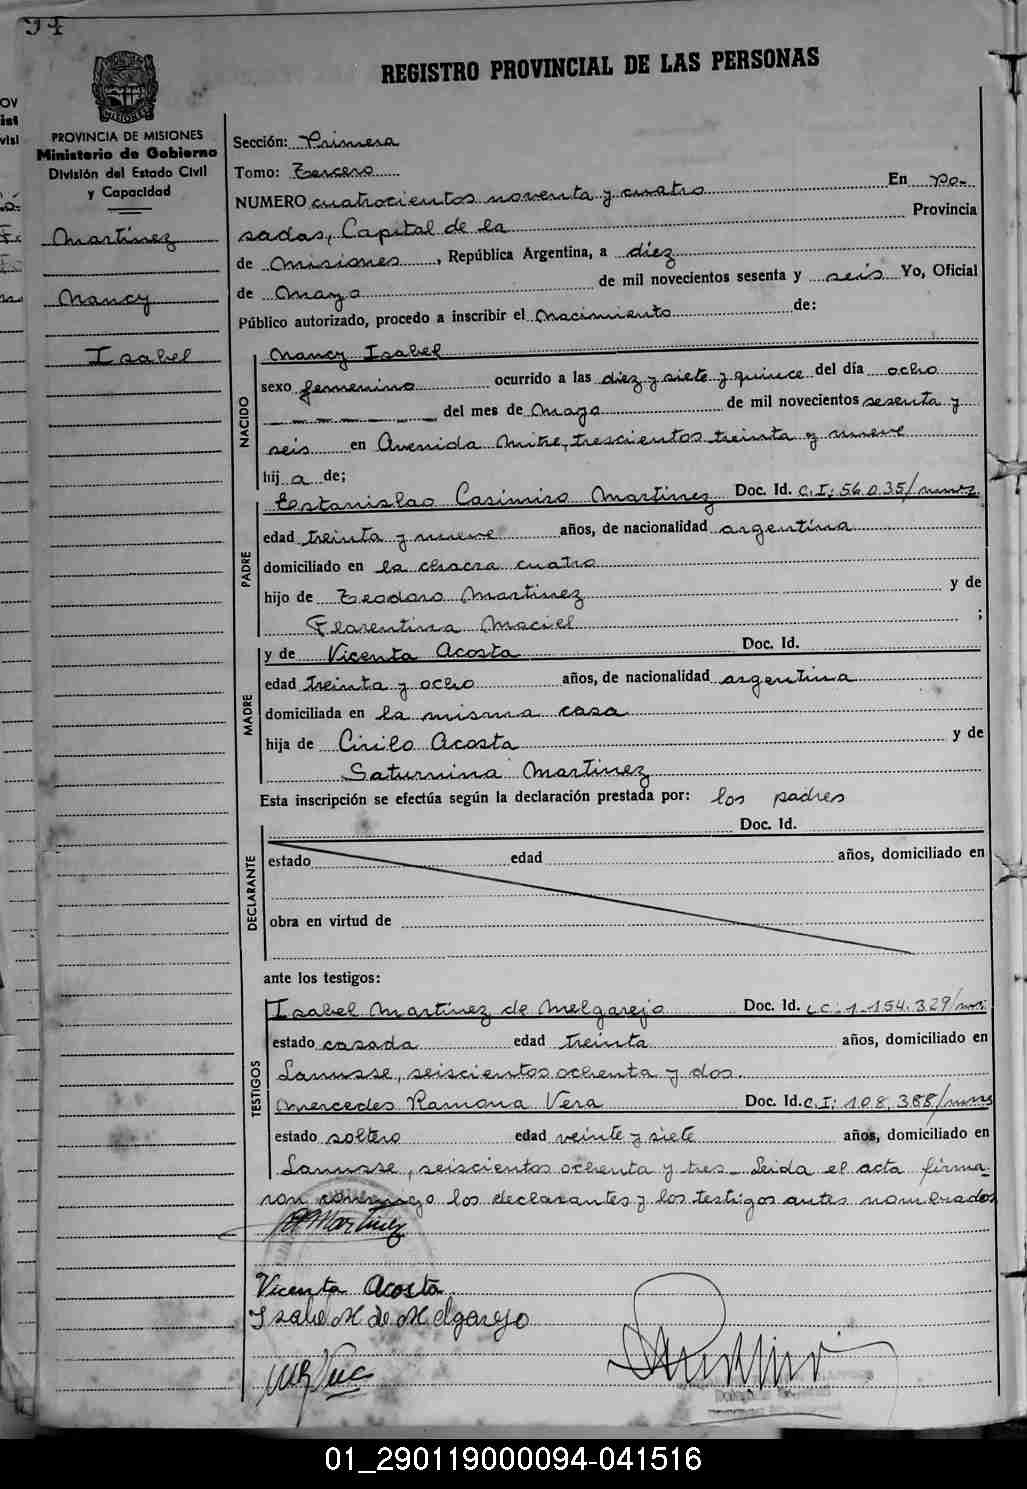 94
REGISTRO PROVINCIAL DE LAS PERSONAS
PROVINCIA DE MISIONES
Ministerio de Gobierno
División del Estado Civil
y Capacidad
Martínez
Nancy
Isabel
Sección: Primera
Tomo: Tercero
NUMERO cuatrocientos noventa y cuatro En Po-
sadas, Capital de la Provincia
de Misiones, República Argentina, a diez
de Mayo de mil novecientos sesenta y seis Yo, Oficial
Público autorizado, procedo a inscribir el Nacimiento de:
NACIDO
Nancy Isabel
sexo femenino ocurrido a las diez y siete y quince del día ocho
del mes de Mayo de mil novecientos sesenta y
seis en Avenida Mitre, trescientos treinta y nueve
hij a de;
PADRE
Estanislao Casimiro Martínez Doc. Id. C.I: 56.035/mnes
edad treinta y nueve años, de nacionalidad argentina
domiciliado en la chacra cuatro
hijo de Teodoro Martinez y de
Florentina Maciel ;
MADRE
y de Vicenta Acosta Doc. Id.
edad treinta y ocho años, de nacionalidad argentina
domiciliada en la misma casa
hija de Cirilo Acosta y de
Saturnina Martinez
Esta inscripción se efectúa según la declaración prestada por: los padres
DECLARANTE
Doc. Id.
estado edad años, domiciliado en
obra en virtud de
ante los testigos:
TESTIGOS
Isabel Martínez de Melgarejo Doc. Id. LC: 1.154.329/
estado casada edad treinta años, domiciliado en
Lanusse, seiscientos ochenta y dos.
Mercedes Ramona Vera Doc. Id. C.I: 108.388/mnes
estado soltero edad veinte y siete años, domiciliado en
Lanusse, seiscientos ochenta y tres_ Leida el acta firma-
ron conmigo los declarantes y los testigos antes nombrados
Martinez
Vicenta Acosta
Isabel M de Melgarejo
01_290119000094-041516